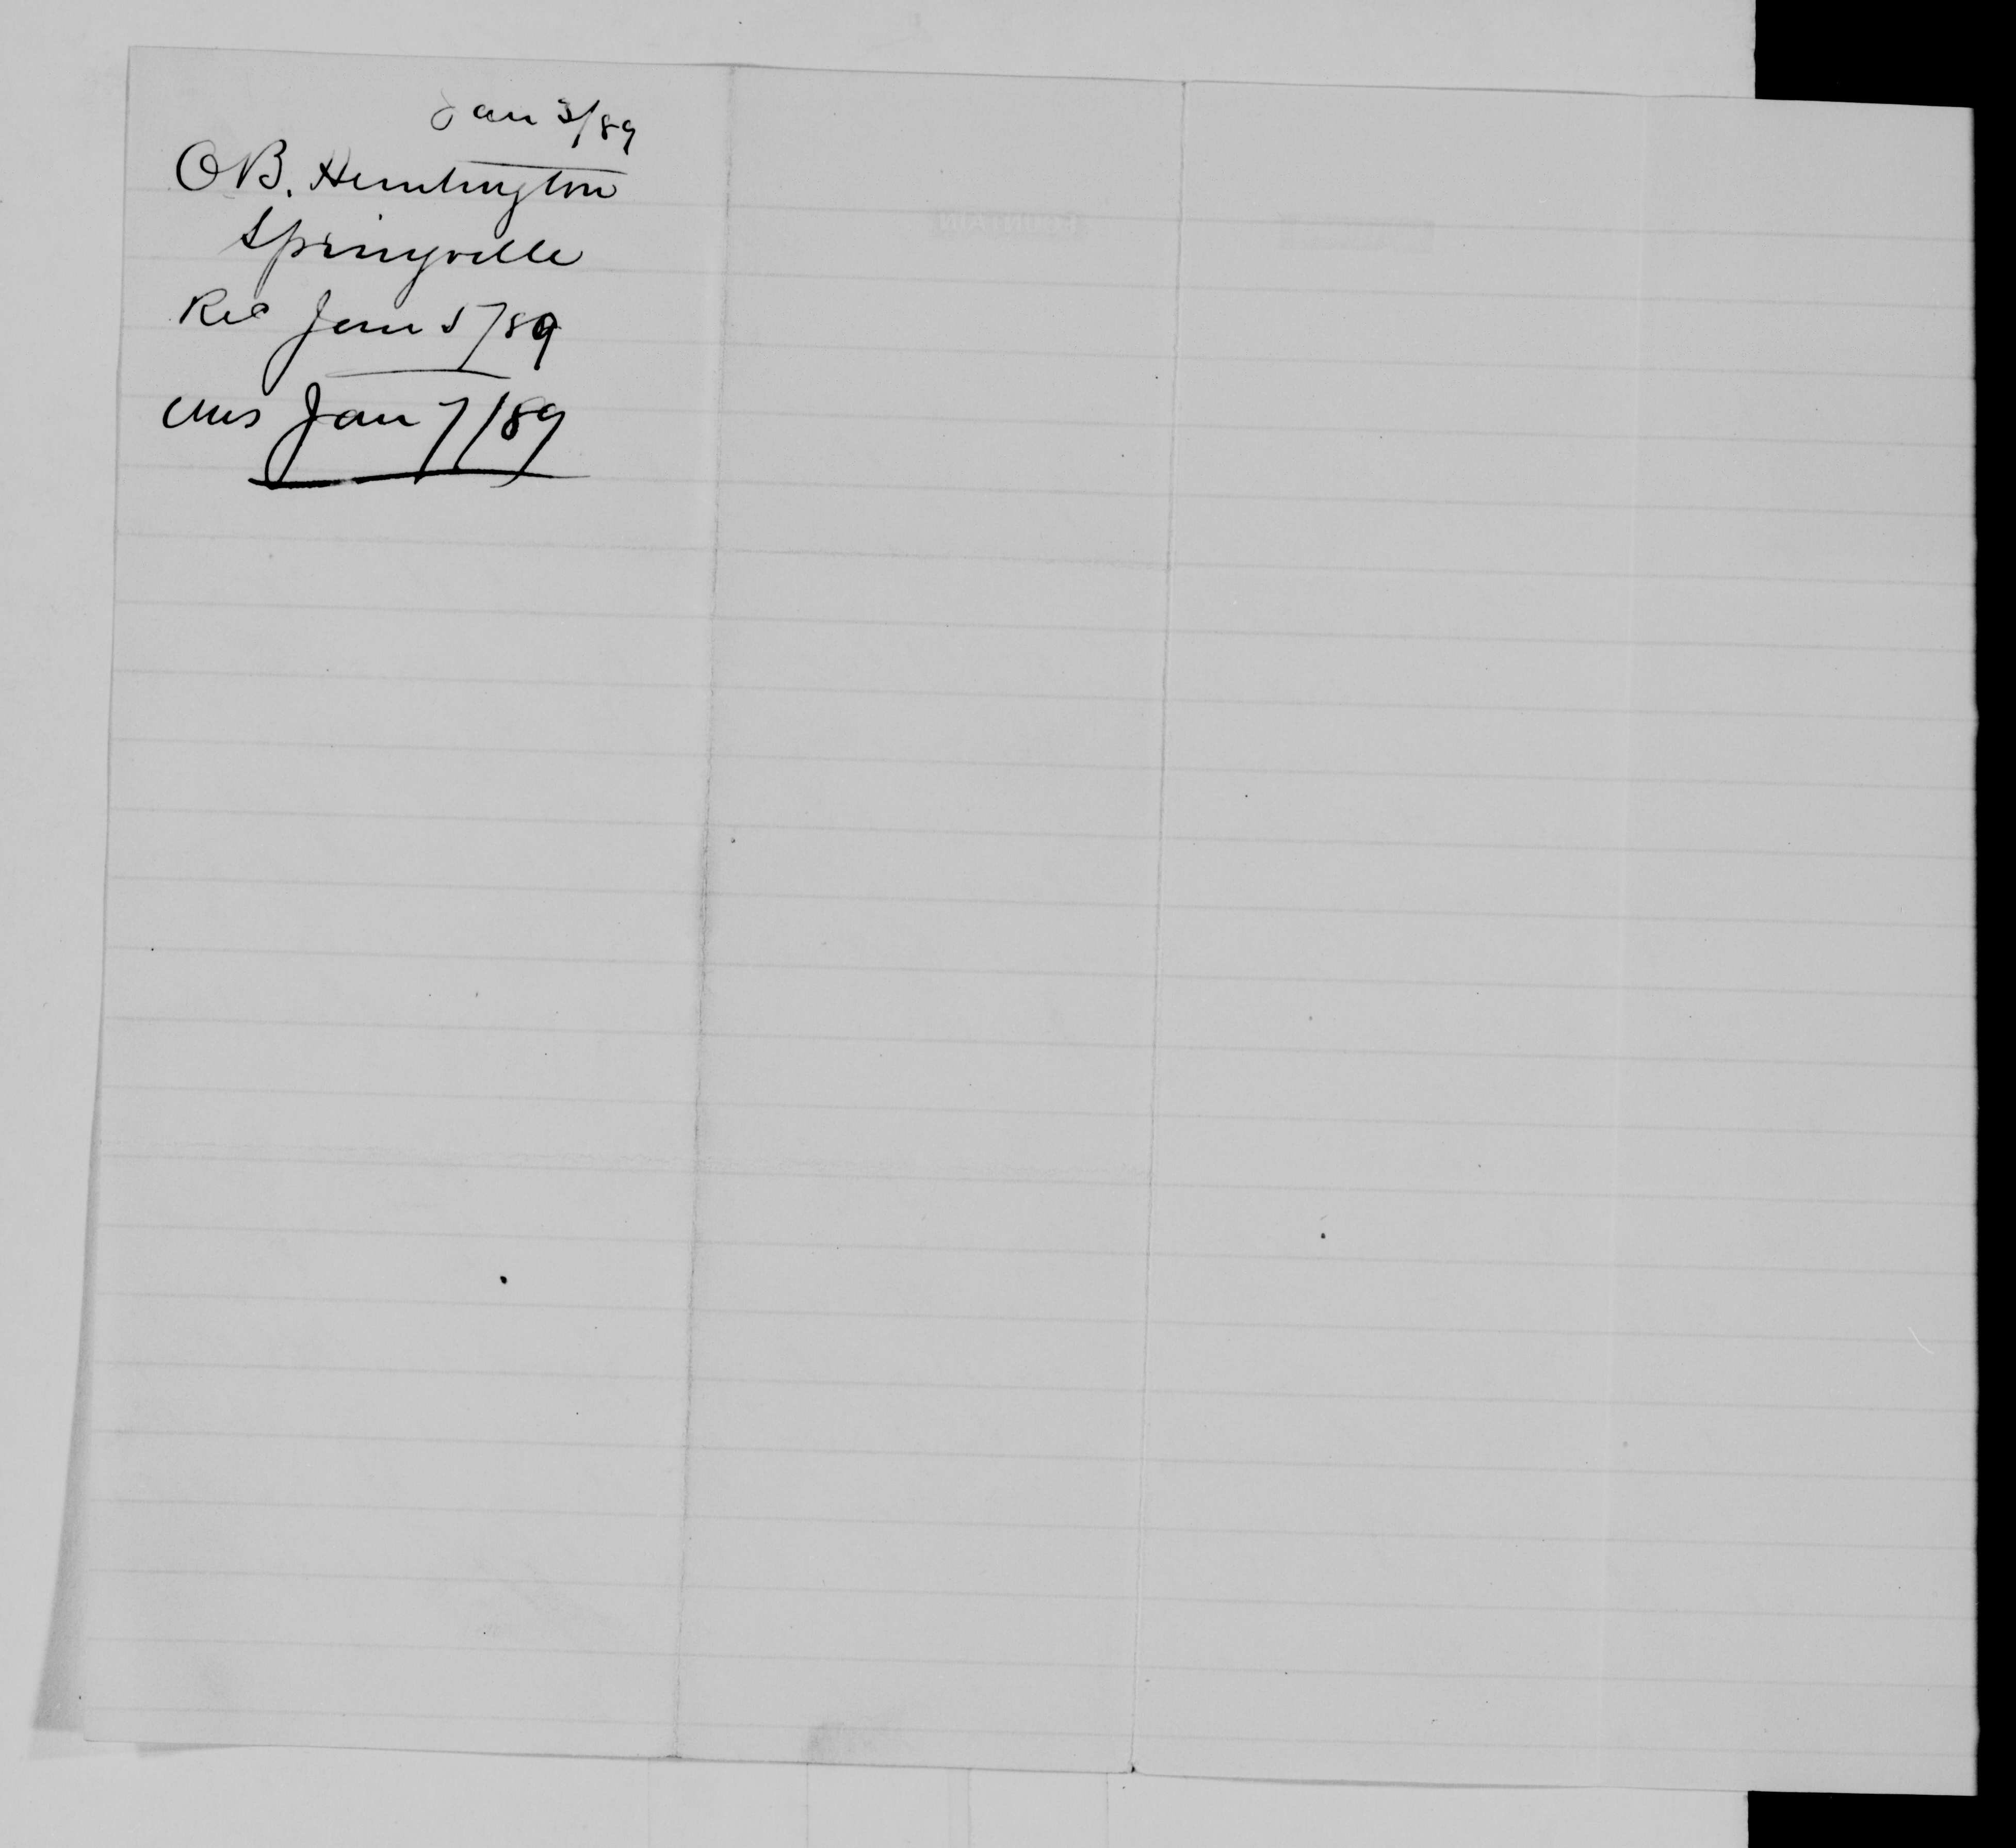 Jan 3/89
OB. Huntington
Springville
Rec Jan 5/89
Ans Jan 7/89